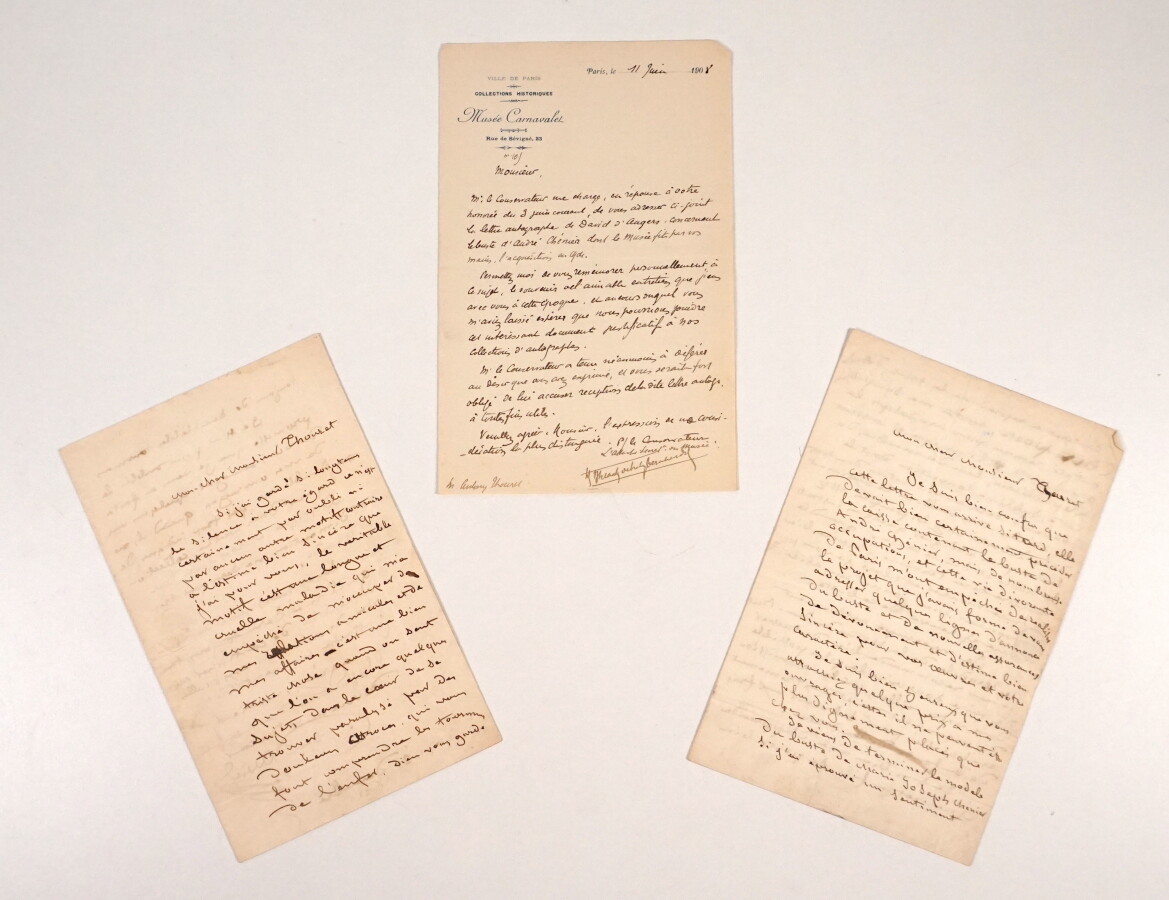 VILLE DE PARIS
COLLECTIONS HISTORIQUES
Musée Carnavalet
Rue de Sévigné, 23
Paris, le 11 Juin 1908
Monsieur,
Mr. le Conservateur me charge, en réponse à votre
honorée du 3 juin courant, de vous adresser ci-joint
la lettre autographe de David d'Angers, concernant
le buste d'André Chénier dont le Musée fit par vos
mains, l'acquisition en
Permettez moi de vous remémorer personnellement à
ce sujet, le souvenir de l'aimable entretien que j'eus
avec vous à cette époque, et au cours duquel vous
m'aviez laissé espérer que nous pourrions joindre
cet intéressant document justificatif à nos
collections d'autographes.
Mr. le Conservateur a tenu néanmoins à déférer
au désir que vous avez exprimé, et vous serait fort
obligé de lui accuser réception de la dite lettre autogr.
à toutes fins utiles.
Veuillez agréer, Monsieur, l'expression de ma consi-
dération la plus distinguée. P/ le Conservateur
Mr. Thouret
Mon cher monsieur Thouret
Si j'ai gardé si longtems
le silence à votre égard ce n'est
certainement par oubli ni
par aucun autre motif contraire
à l'estime bien sincère que
j'ai pour vous, le véritable
motif c'est une longue et
cruelle maladie qui m'a
empêché de m'occuper de
mes relations amicales et de
mes affaires - c'est une bien
triste chose quand on sent
que l'on a encore quelques
sujets dans le cœur de se
trouver paralysé par des
douleurs atroces, qui vous
font comprendre les tourmens
de l'enfer. Dieu vous garde
mon cher Monsieur Thouret
Je suis bien confus que
cette lettre vous arrive si tard, elle
devait bien certainement précéder
la caisse contenant le buste de
André Chénier, mais, de nombreuses
occupations, et cette vie dévorante
de Paris m'ont empêché de réaliser
le projet que j'avais formé de vous
adresser quelques lignes d'annonce
du buste et de nouvelles assurances
de dévouement et d'estime bien
sincère pour vos œuvres et votre
caractère.
Je suis bien heureux que vous
attachiez quelque prix à mes
ouvrages, certes il ne peuvent être
plus dignement placé que
chez vous.
Je viens de terminer le modèle
du buste de Marie Joseph Chénier
si j'ai éprouvé un sentiment